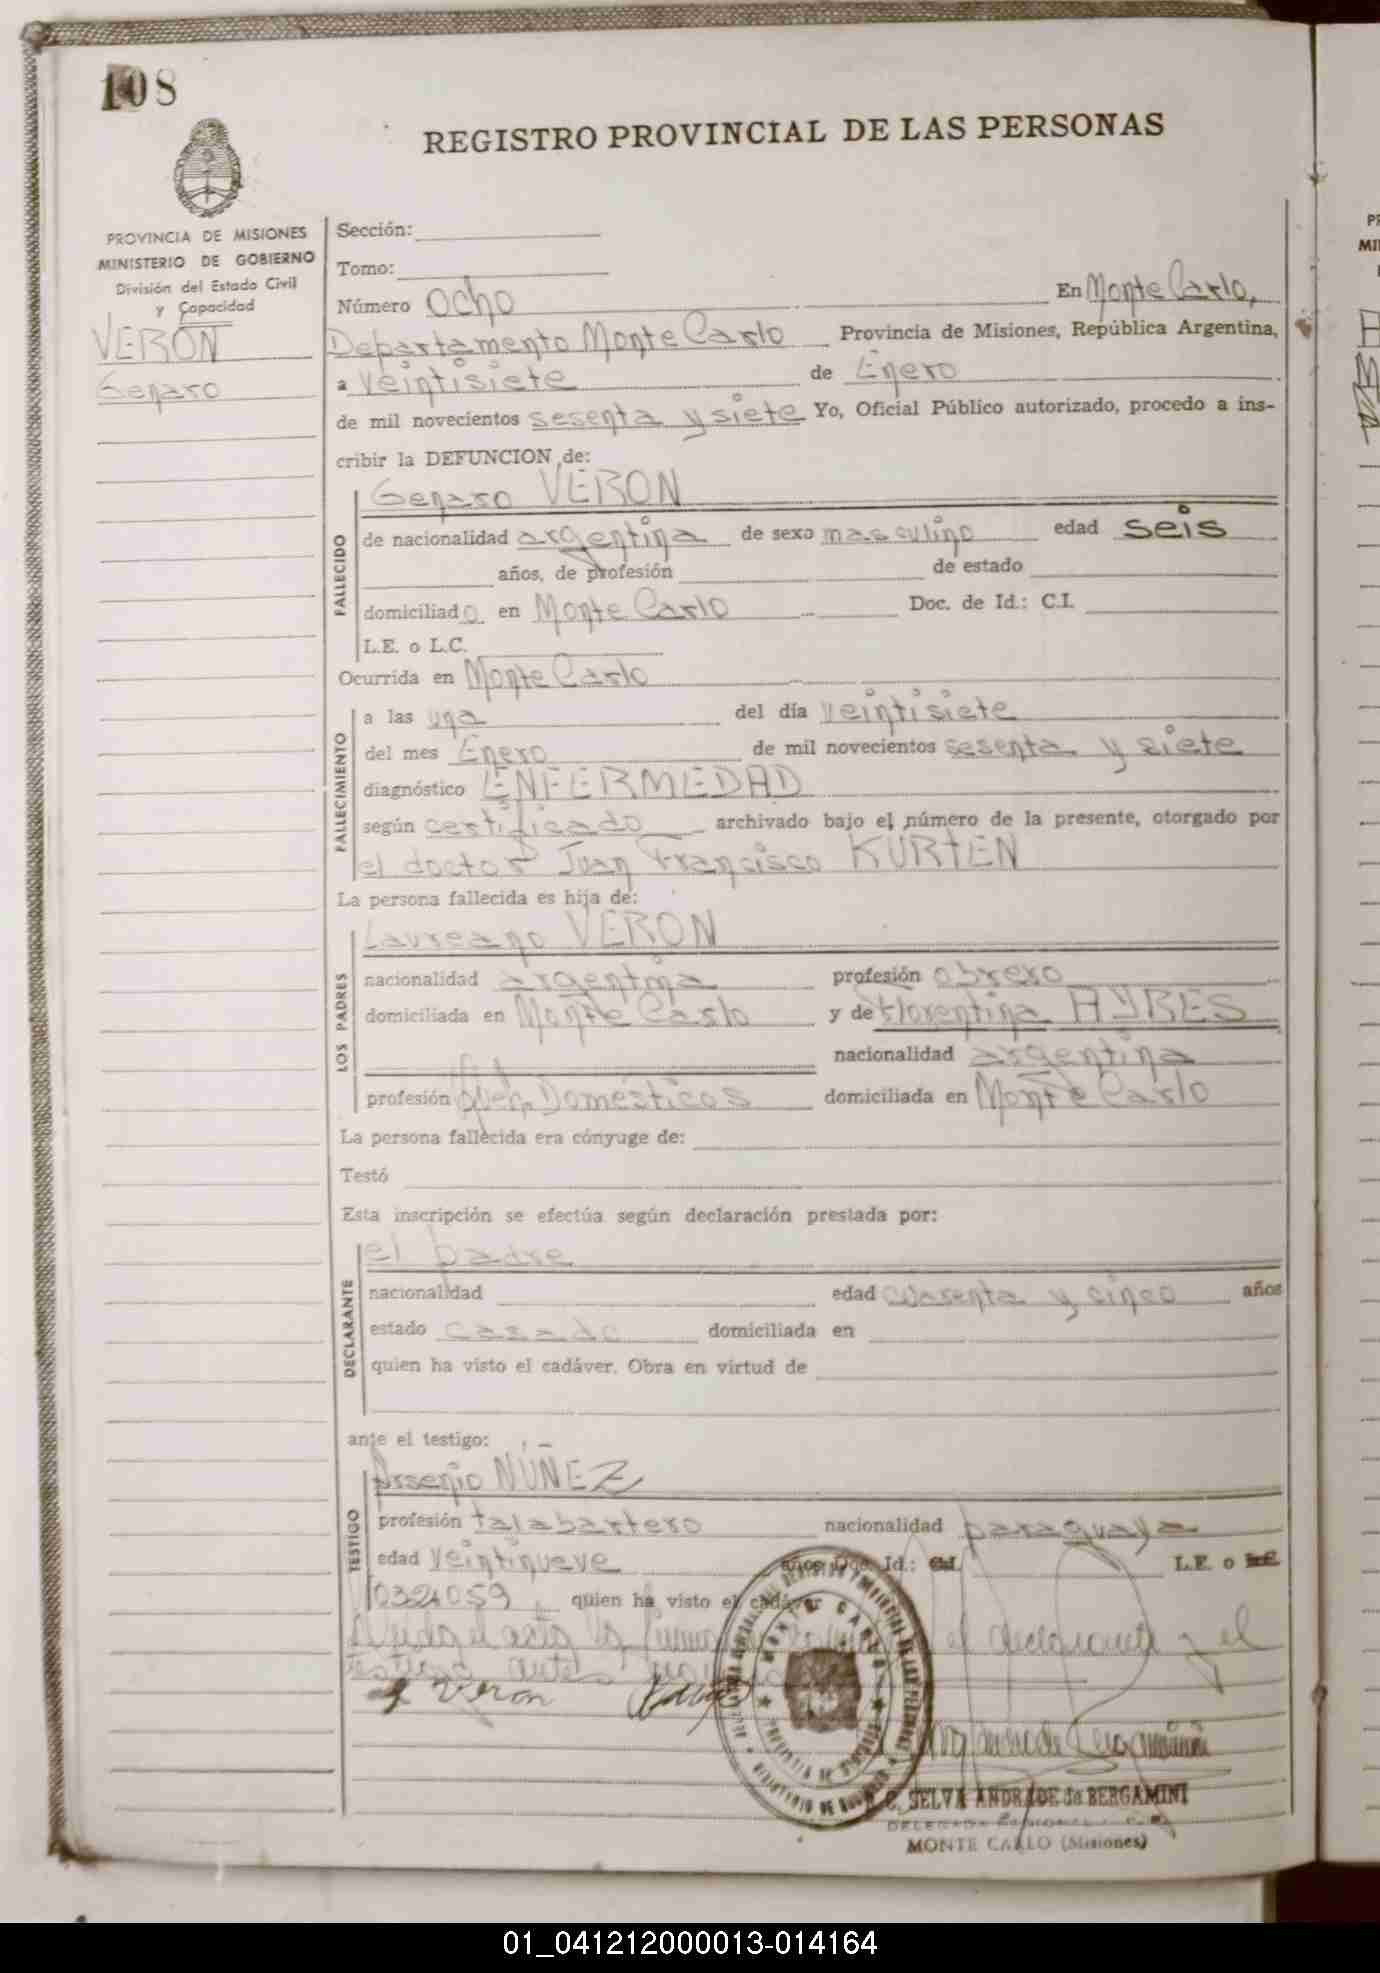 108
REGISTRO PROVINCIAL DE LAS PERSONAS
PROVINCIA DE MISIONES
MINISTERIO DE GOBIERNO
División del Estado Civil
y Capacidad
VERON
Genaro
Sección:
Tomo:
Número Ocho En Monte Carlo,
Departamento Monte Carlo Provincia de Misiones, República Argentina,
a veintisiete de Enero
de mil novecientos sesenta y siete Yo, Oficial Público autorizado, procedo a ins-
cribir la DEFUNCION de:
Genaro VERON
FALLECIDO
de nacionalidad argentina de sexo masculino edad seis
años, de profesión de estado
domiciliado en Monte Carlo Doc. de Id.: C.I.
L.E. o L.C.
Ocurrida en Monte Carlo
FALLECIMIENTO
a las una del día veintisiete
del mes Enero de mil novecientos sesenta y siete
diagnóstico ENFERMEDAD
según certificado archivado bajo el número de la presente, otorgado por
el doctor Juan Francisco KURTEN
La persona fallecida es hija de:
Laureano VERON
LOS PADRES
nacionalidad argentina profesión obrero
domiciliada en Monte Carlo y de Florentina AYRES
nacionalidad argentina
profesión Queh. Domésticos domiciliada en Monte Carlo
La persona fallecida era cónyuge de:
Testó
Esta inscripción se efectúa según declaración prestada por:
el padre
DECLARANTE
nacionalidad edad cuarenta y cinco años
estado casado domiciliada en
quien ha visto el cadáver. Obra en virtud de
ante el testigo:
Arsenio NUÑEZ
TESTIGO
profesión talabartero nacionalidad paraguaya
edad veintinueve años Doc. Id.: C.I. L.E. o L.C.
quien ha visto el cadáver
Leída el acta la firman el declarante y el
testigo ante
Veron
MONTE CARLO
C. SELVA ANDRADE de BERGAMINI
DELEGADA
MONTE CARLO (Misiones)
01_041212000013-014164